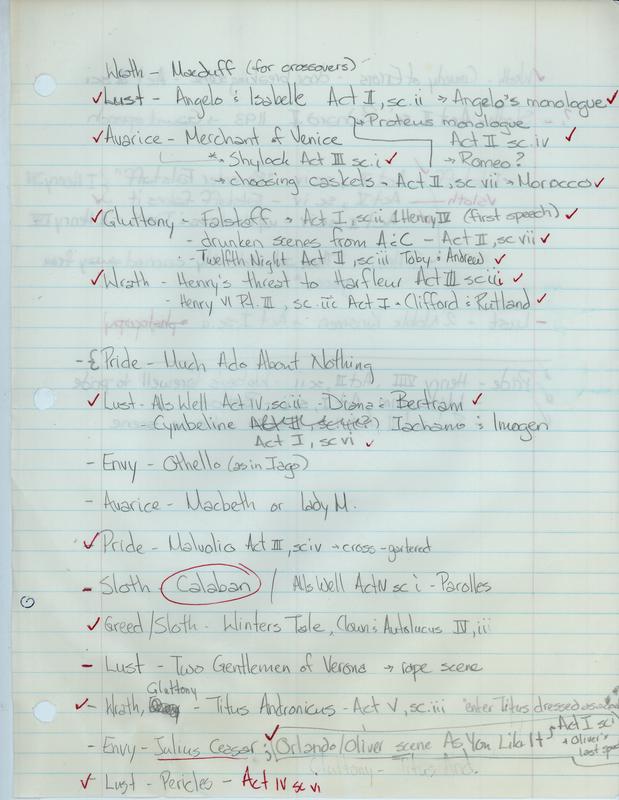 Wrath - Macduff (for crossovers)
✓Lust - Angelo & Isabelle Act II, sc. ii → Angelo's monologue ✓
↳ Proteus monologue
Act II sc. iv ✓
✓Avarice - Merchant of Venice
* Shylock Act III sc. i ✓
→ Romeo?
→ choosing caskets → Act II, sc vii → Morocco ✓
✓Gluttony - Falstaff → Act I, sc ii 1 Henry IV (first speech) ✓
- drunken scenes from A&C - Act II, sc vii ✓
- Twelfth Night Act II, sc iii Toby & Andrew ✓
✓Wrath - Henry's threat to Harfleur Act III sc iii ✓
- Henry VI Pt. III, sc. iii Act I - Clifford & Rutland ✓
- { Pride - Much Ado About Nothing
✓Lust - Alls Well Act IV, sc. ii - Diana & Bertram ✓
Cymbeline Iachamo & Imogen
Act I, sc vi ✓
- Envy - Othello (as in Iago)
- Avarice - Macbeth or Lady M.
✓Pride - Malvolio Act III, sc iv → cross-gartered
- Sloth - Calaban / Alls Well Act IV sc i - Parolles
✓Greed/Sloth - Winters Tale, Clown & Autolucus IV, ii
- Lust - Two Gentlemen of Verona → rape scene
✓- Wrath, Gluttony - Titus Andronicus - Act V, sc. iii "enter Titus dressed as
- Envy - Julius Ceaser ; ✓ Orlando/Oliver scene As You Like It → Act I sc i
+ Oliver's last
✓ Lust - Pericles - Act IV sc vi